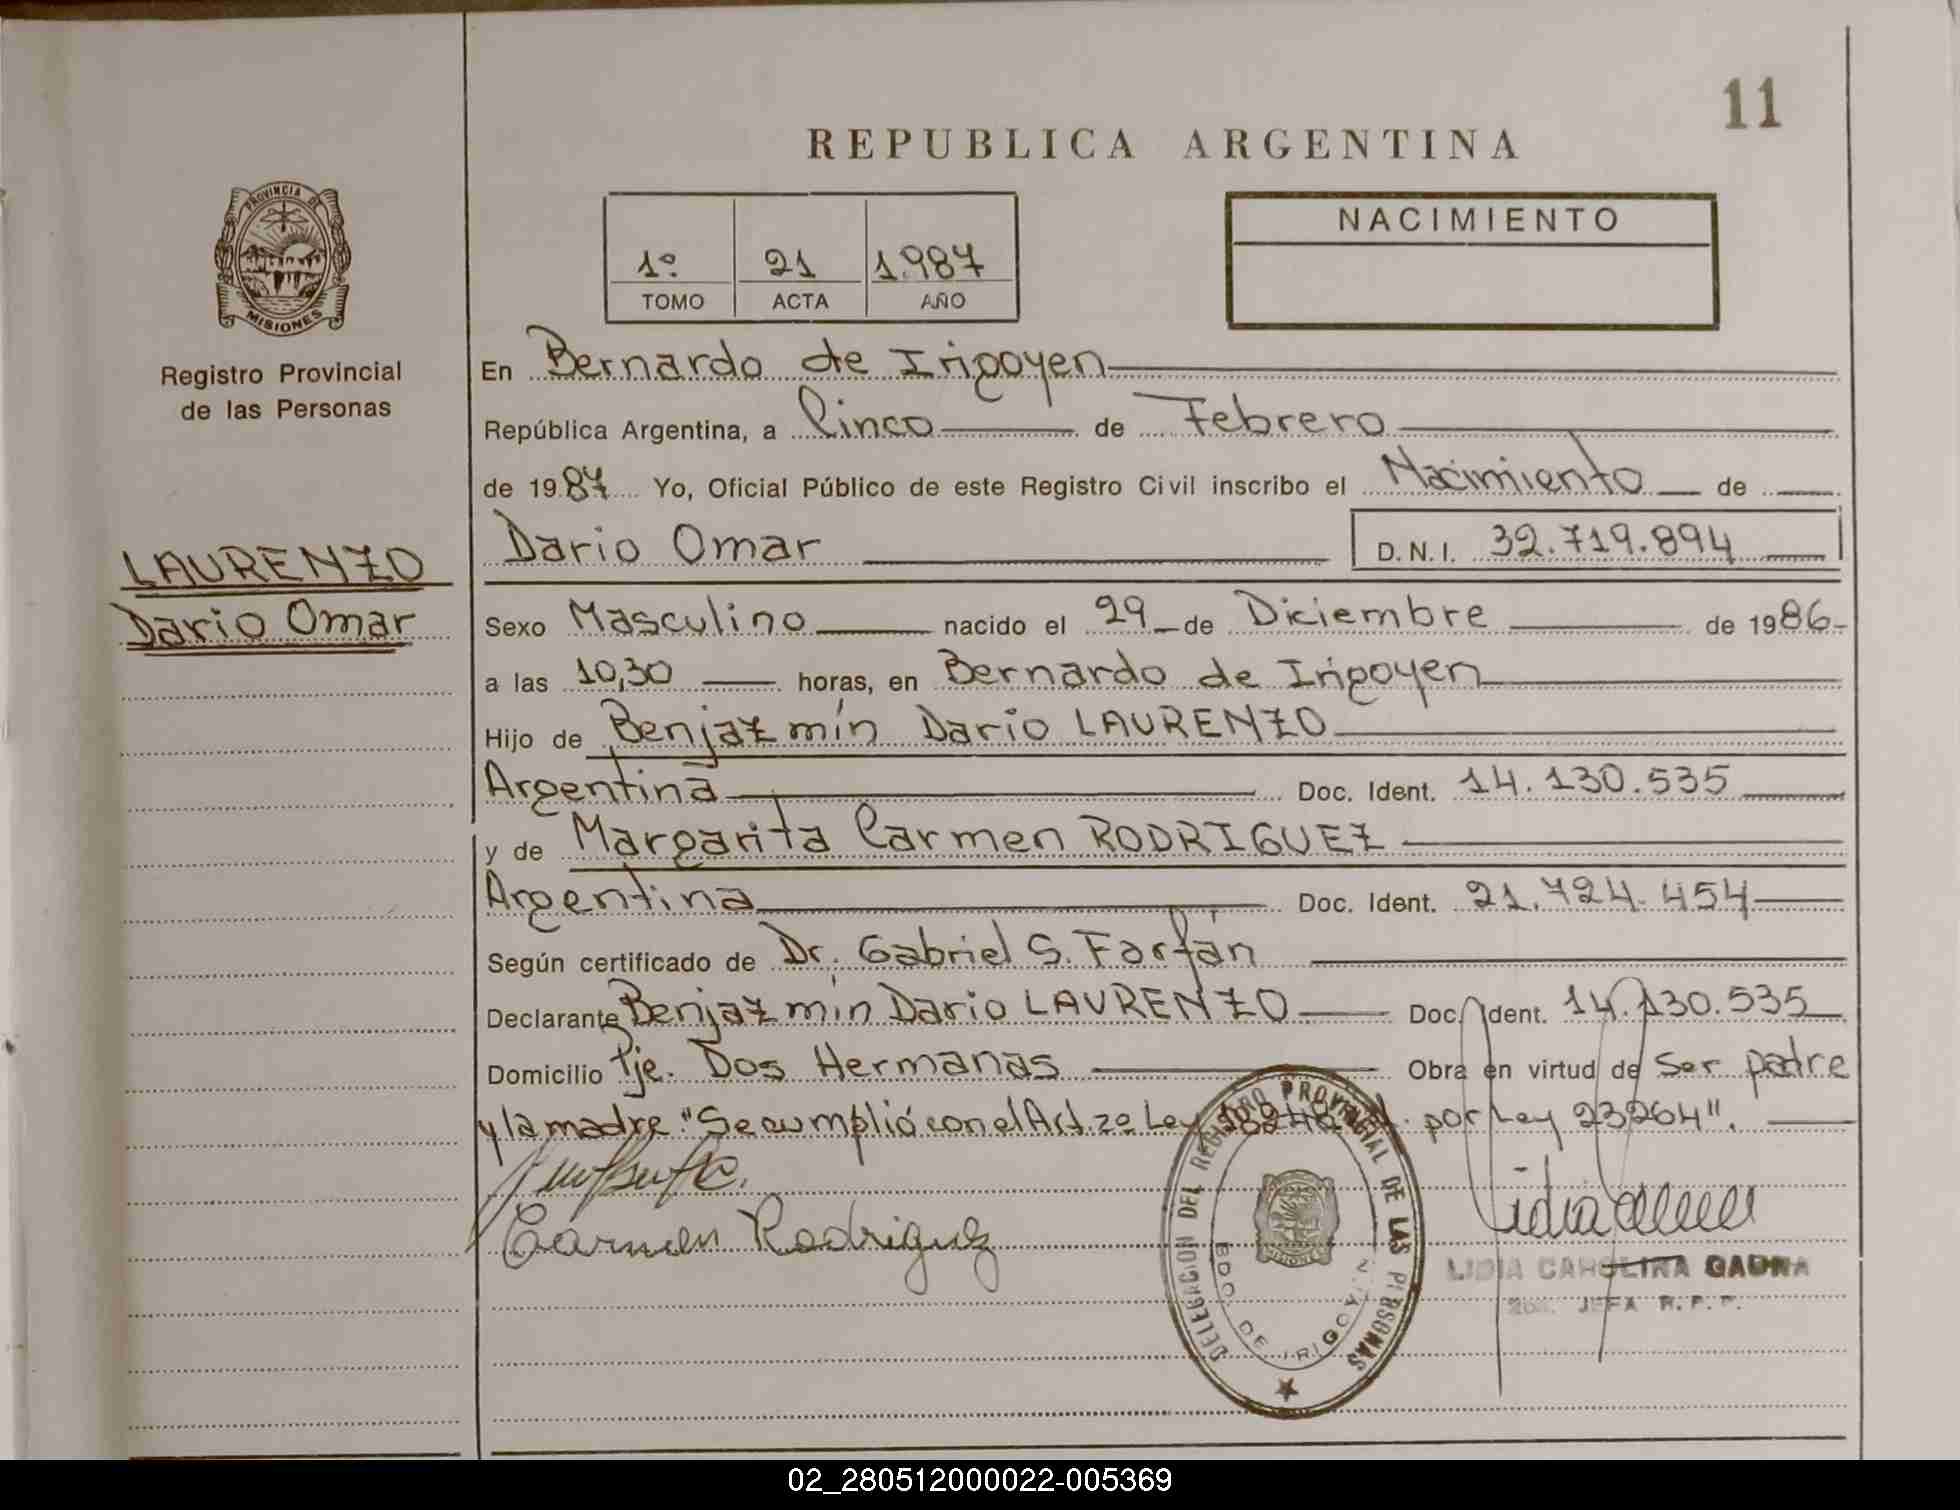 11
REPUBLICA ARGENTINA
PROVINCIA DE
MISIONES
Registro Provincial
de las Personas
1º 21 1.987
TOMO ACTA AÑO
NACIMIENTO
En Bernardo de Irigoyen
República Argentina, a Cinco de Febrero
de 1987 Yo, Oficial Público de este Registro Civil inscribo el Nacimiento de
Dario Omar D.N.I. 32.719.894
LAURENZO
Dario Omar
Sexo Masculino nacido el 29 de Diciembre de 1986
a las 10,30 horas, en Bernardo de Irigoyen
Hijo de Benjazmín Dario LAURENZO
Argentina Doc. Ident. 14.130.535
y de Margarita Carmen RODRIGUEZ
Argentina Doc. Ident. 21.724.454
Según certificado de Dr. Gabriel S. Farfán
Declarante Benjazmín Dario LAURENZO Doc. Ident. 14.130.535
Domicilio Pje. Dos Hermanas Obra en virtud de Ser padre
y la madre "Se cumplió con el Art. 2º Ley 18248 por Ley 23264".
Carmen Rodriguez
DELEGACION DEL REGISTRO PROVINCIAL DE LAS PERSONAS
BDO. DE IRIGOYEN
MISIONES
LIDIA CAROLINA GAUNA
JEFA R.P.P.
02_280512000022-005369